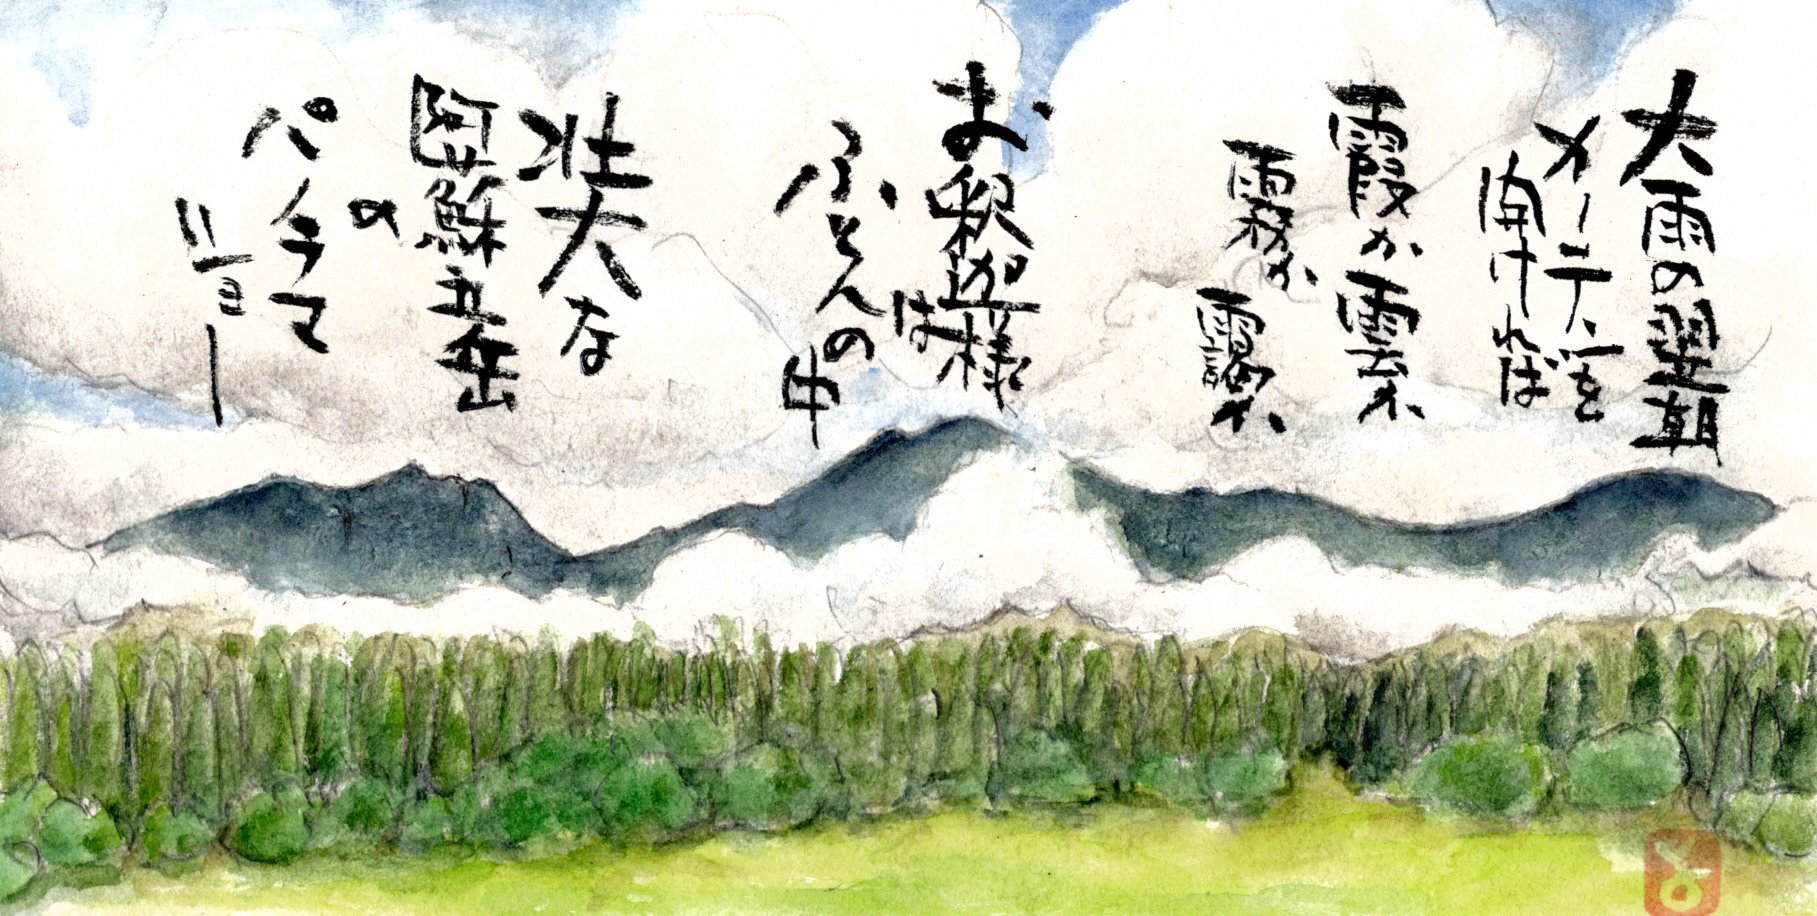 大雨の翌朝
カーテンを
開ければ
霞か雲か
霧か靄か
お釈迦様
は
ふとんの中
壮大な
阿蘇五岳
の
パノラマ
ショー
とよ